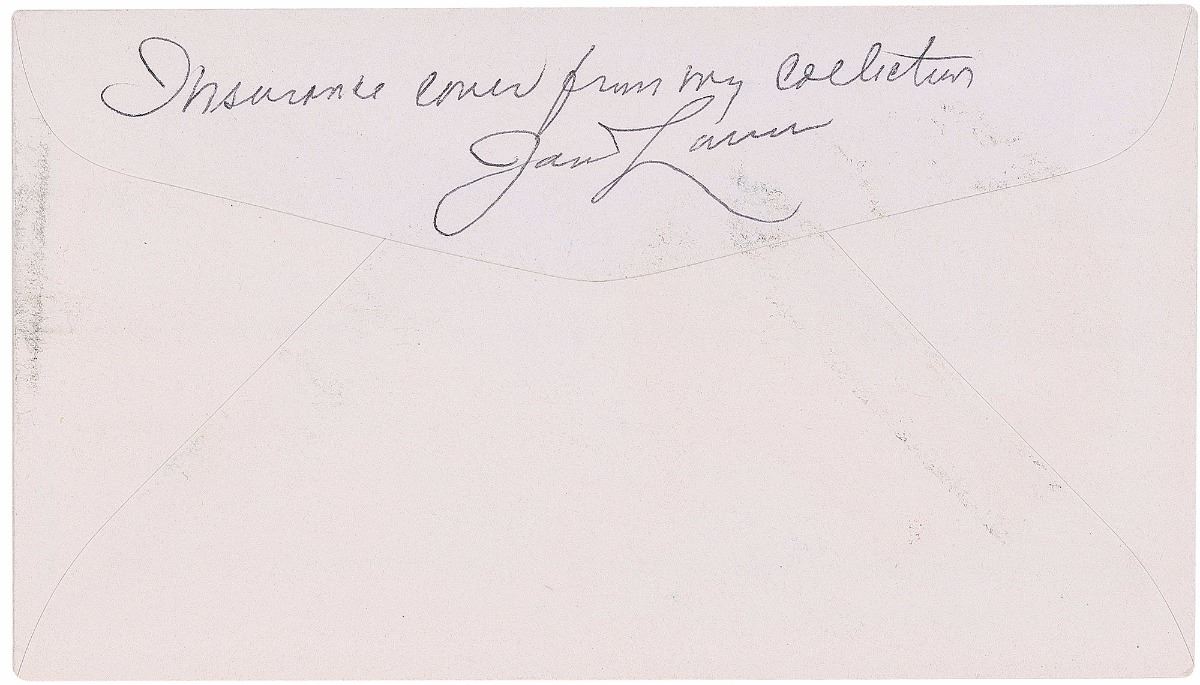 Insurance cover from my collection
Jan